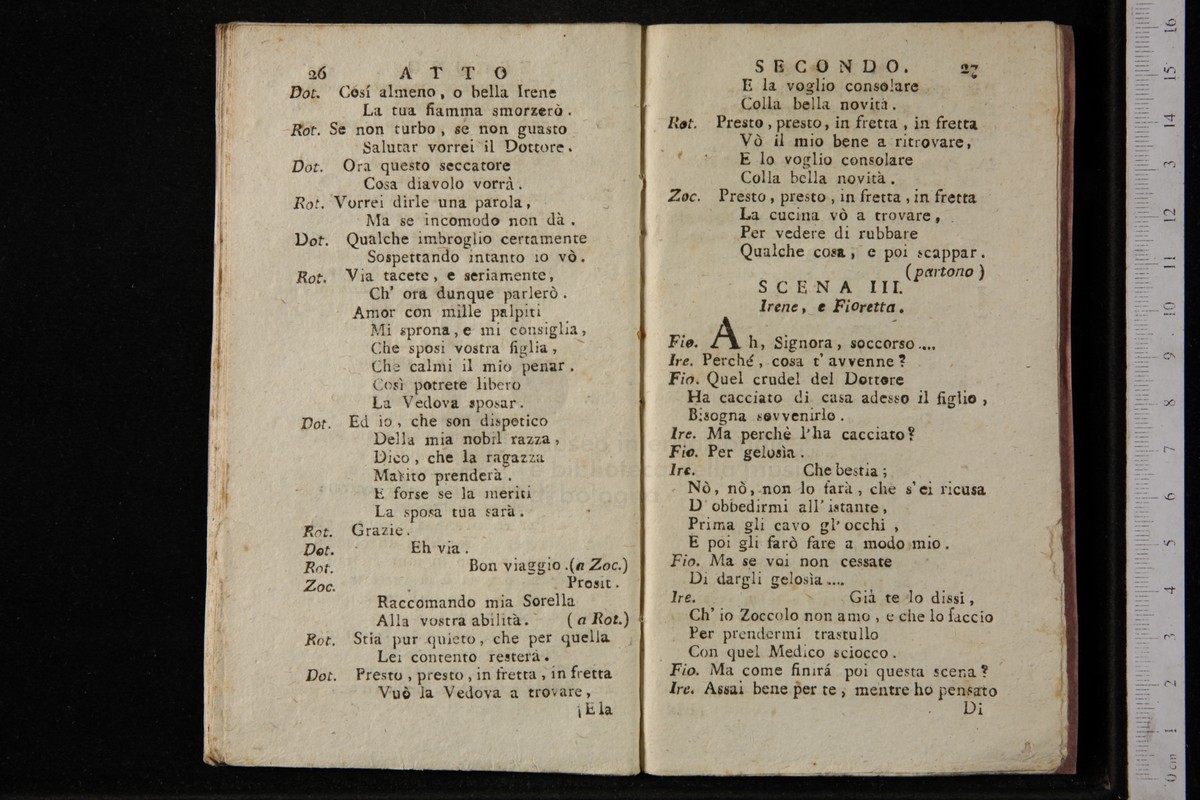 26 ATTO
Dot. Cosí almeno, o bella Irene
La tua fiamma smorzerò.
Rot. Se non turbo, se non guasto
Salutar vorrei il Dottore.
Dot. Ora questo seccatore
Cosa diavolo vorrà.
Rot. Vorrei dirle una parola,
Ma se incomodo non dà.
Dot. Qualche imbroglio certamente
Sospettando intanto io vò.
Rot. Via tacete, e seriamente,
Ch' ora dunque parlerò.
Amor con mille palpiti
Mi sprona, e mi consiglia,
Che sposi vostra figlia,
Che calmi il mio penar.
Così potrete libero
La Vedova sposar.
Dot. Ed io, che son dispotico
Della mia nobil razza,
Dico, che la ragazza
Marito prenderà.
E forse se la meriti
La sposa tua sarà.
Rot. Grazie.
Dot. Eh via.
Rot. Bon viaggio. (a Zoc.)
Zoc. Prosit.
Raccomando mia Sorella
Alla vostra abilità. (a Rot.)
Rot. Stia pur quieto, che per quella
Lei contento resterà.
Dot. Presto, presto, in fretta, in fretta
Vuò la Vedova a trovare,
E la
SECONDO. 27
E la voglio consolare
Colla bella novità.
Rot. Presto, presto, in fretta, in fretta
Vò il mio bene a ritrovare,
E lo voglio consolare
Colla bella novità.
Zoc. Presto, presto, in fretta, in fretta
La cucina vò a trovare,
Per vedere di rubbare
Qualche cosa, e poi scappar.
(partono)
SCENA III.
Irene, e Fioretta.
Fio. Ah, Signora, soccorso....
Ire. Perché, cosa t' avvenne?
Fio. Quel crudel del Dottore
Ha cacciato di casa adesso il figlio,
Bisogna sovvenirlo.
Ire. Ma perchè l'ha cacciato?
Fio. Per gelosìa.
Ire. Che bestia;
Nò, nò, non lo farà, che s' ei ricusa
D' obbedirmi all' istante,
Prima gli cavo gl' occhi,
E poi gli farò fare a modo mio.
Fio. Ma se voi non cessate
Di dargli gelosìa....
Ire. Già te lo dissi,
Ch' io Zoccolo non amo, e che lo faccio
Per prendermi trastullo
Con quel Medico sciocco.
Fio. Ma come finirá poi questa scena?
Ire. Assai bene per te, mentre ho pensato
Di